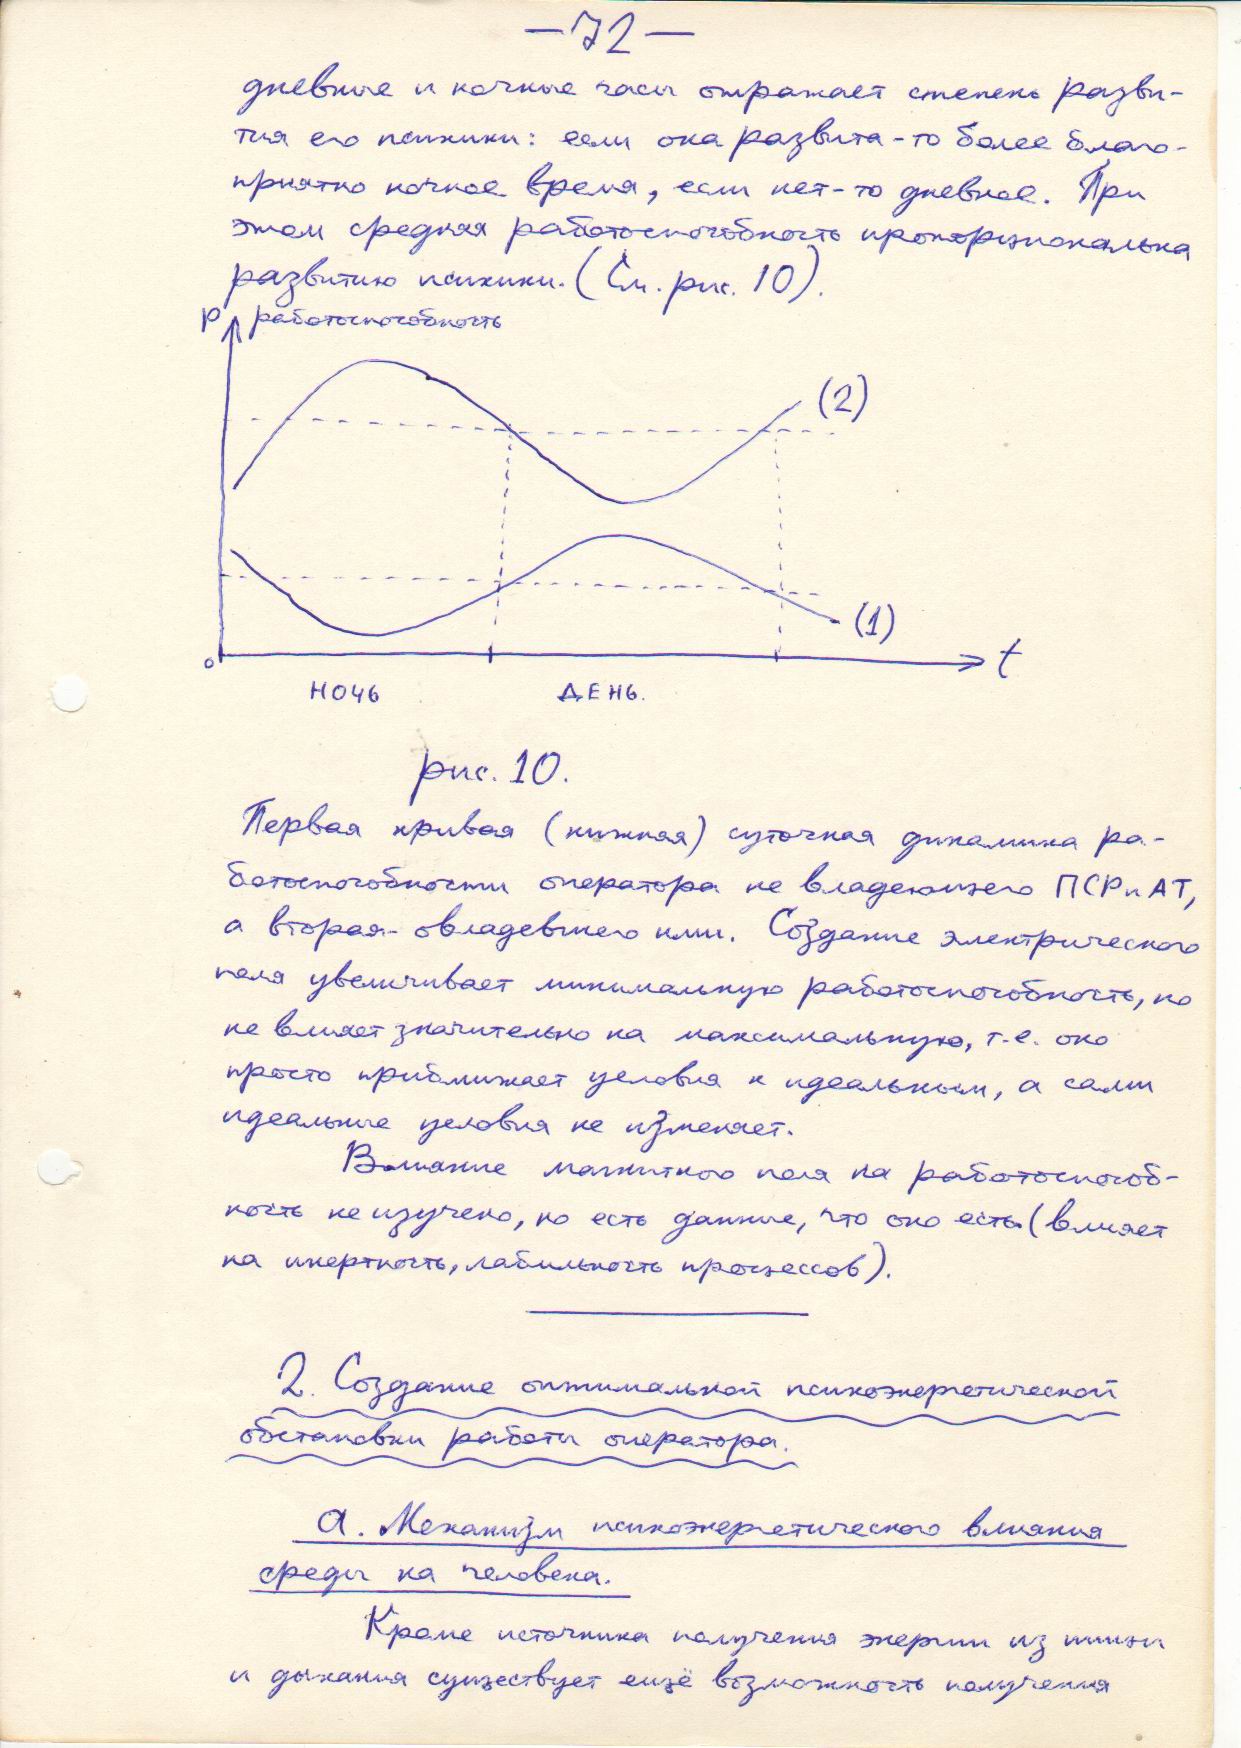 —72—
дневные и ночные часы отражает степень разви-
тия его психики: если она развита-то более благо-
приятно ночное время, если нет-то дневное. При
этом средняя работоспособность пропорциональна
развитию психики. (См. рис. 10).
P работоспособность
(2)
(1)
0
t
НОЧЬ ДЕНЬ.
рис. 10.
Первая кривая (нижняя) суточная динамика ра-
ботоспособности оператора не владеющего ПСРиАТ,
а вторая-овладевшего ими. Создание электрического
поля увеличивает минимальную работоспособность, но
не влияет значительно на максимальную, т.е. оно
просто приближает условия к идеальным, а сами
идеальные условия не изменяет.
Влияние магнитного поля на работоспособ-
ность не изучено, но есть данные, что оно есть. (влияет
на инертность, лабильность процессов).
2. Создание оптимальной психоэнергетической
обстановки работы оператора.
а. Механизм психоэнергетического влияния
среды на человека.
Кроме источника получения энергии из пищи
и дыхания существует ещё возможность получения